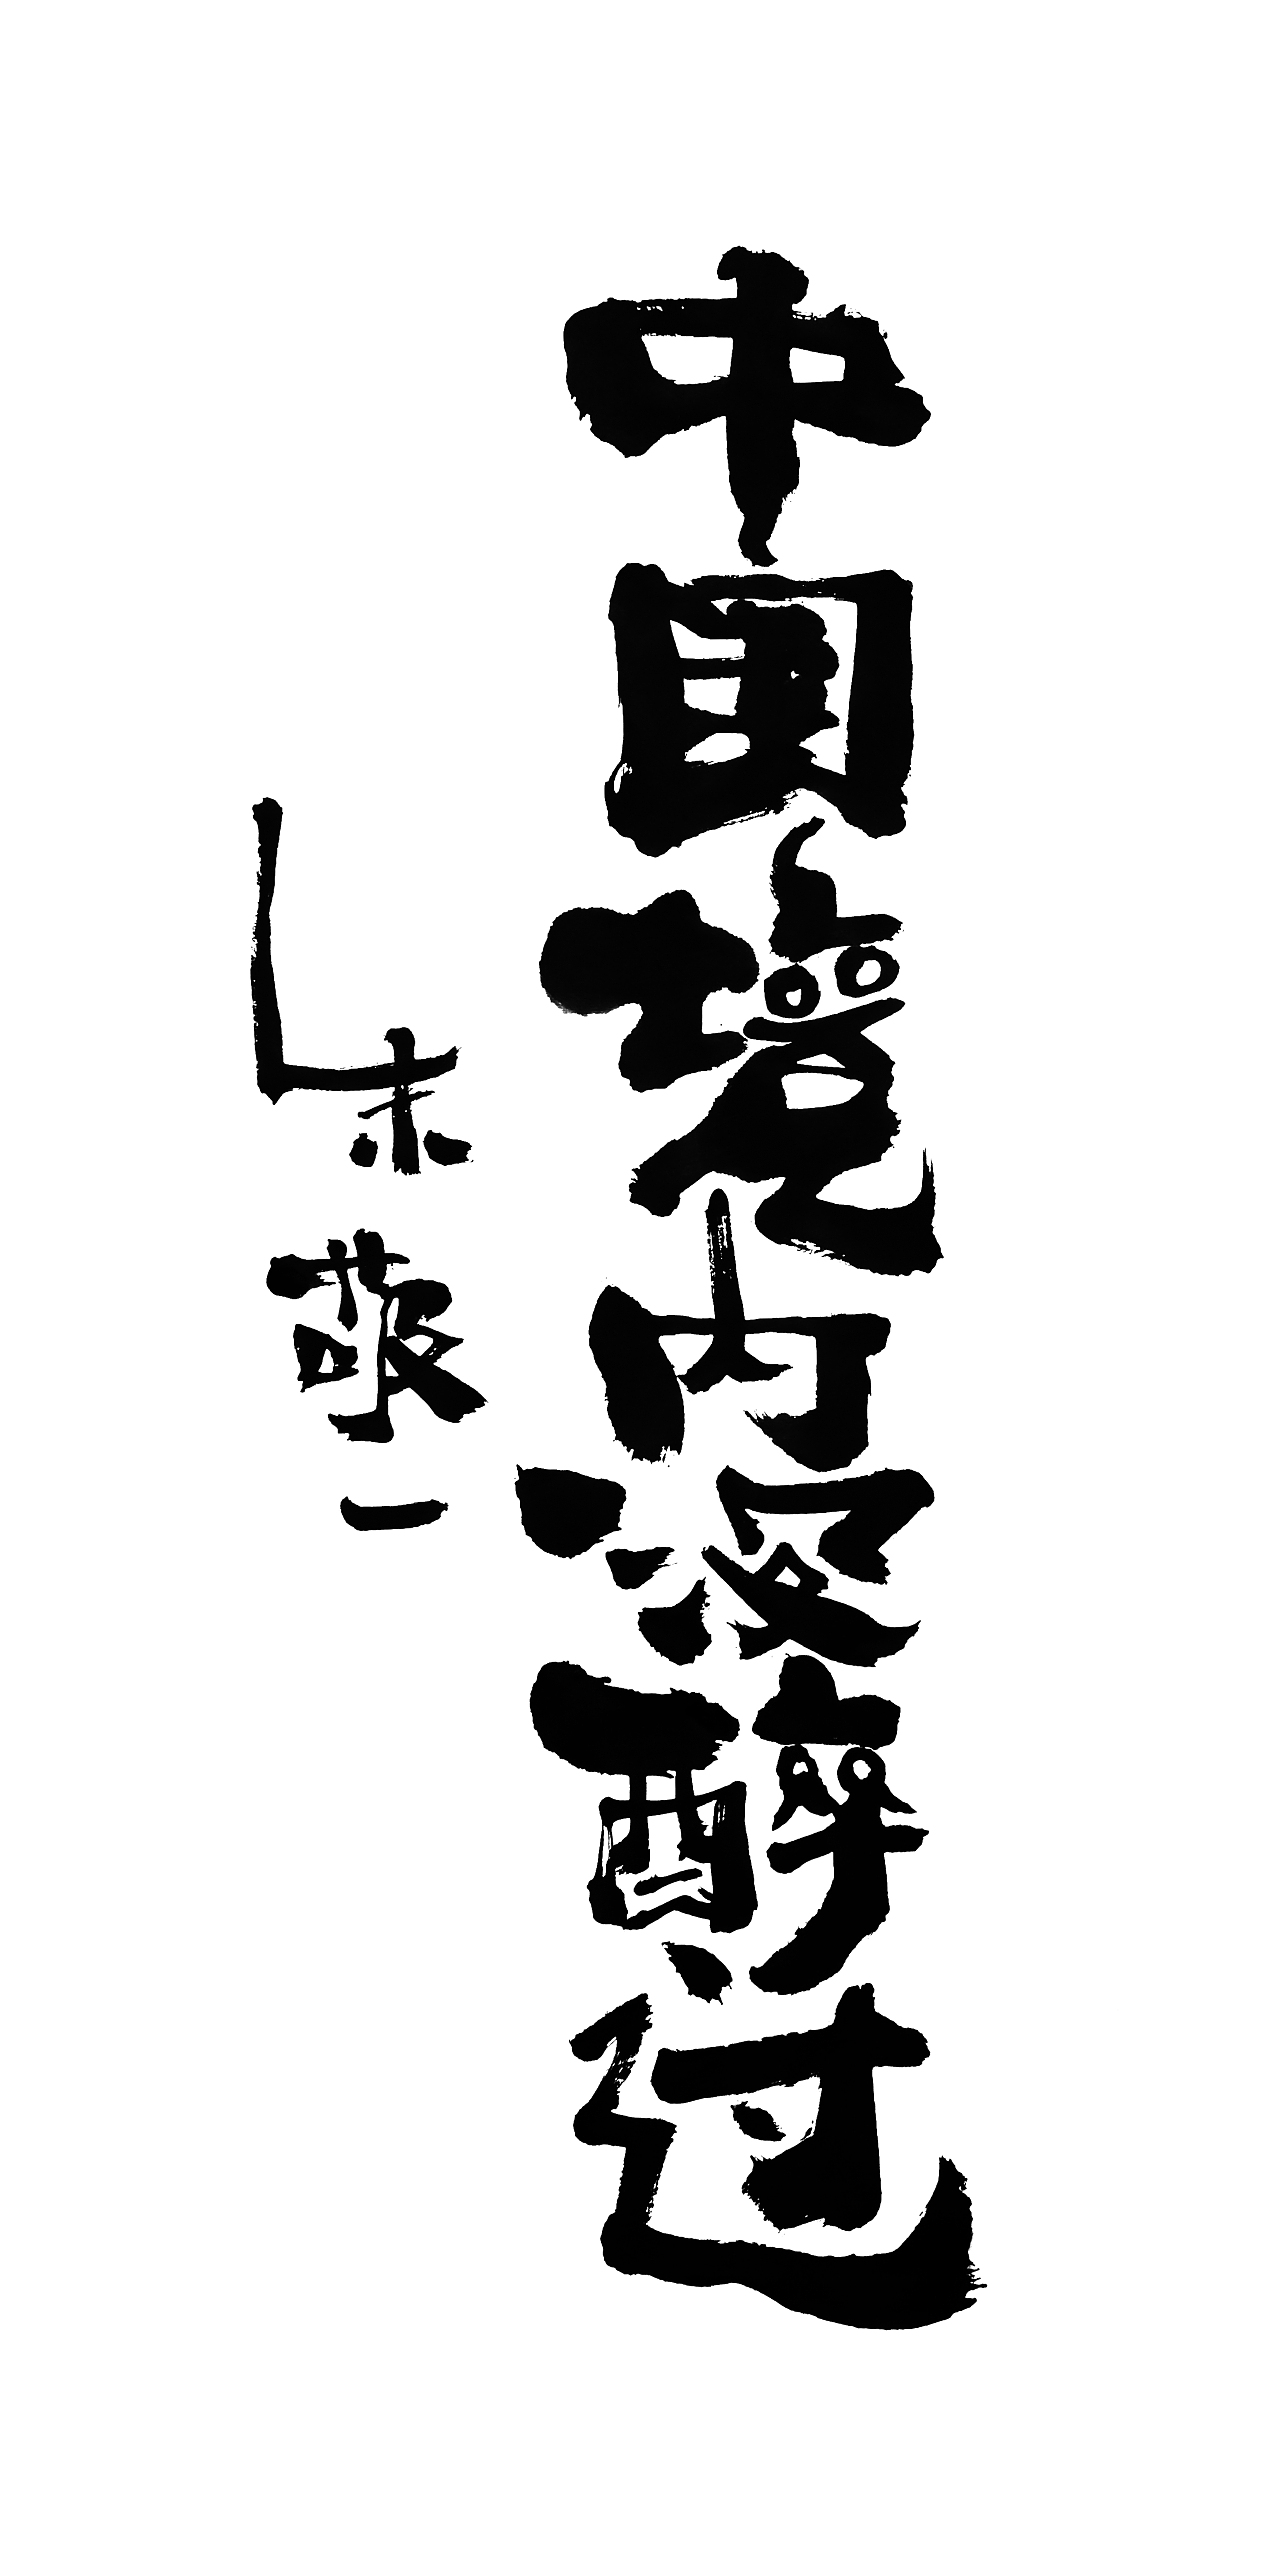 中国境内没醉过
朱敬一